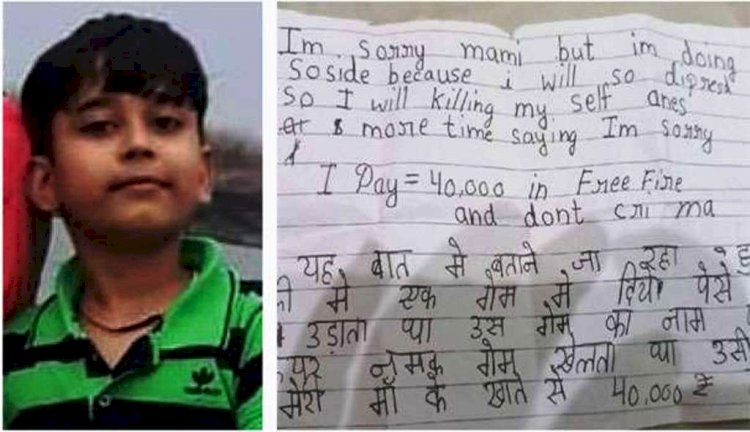 Im sorry mami but im doing
Soside because i will so dipresd
So I will killing my self ones
more time saying Im sorry
I Pay = 40,000 in Free Fire
and dont cri ma
यह बात मे बताने जा रहा
की मे एक गेम मे दिये पेसे
उड़ाता था उस गेम का नाम
नमक गेम खेलता था उसी
मेरी माँ के खाते से 40,000 ₹